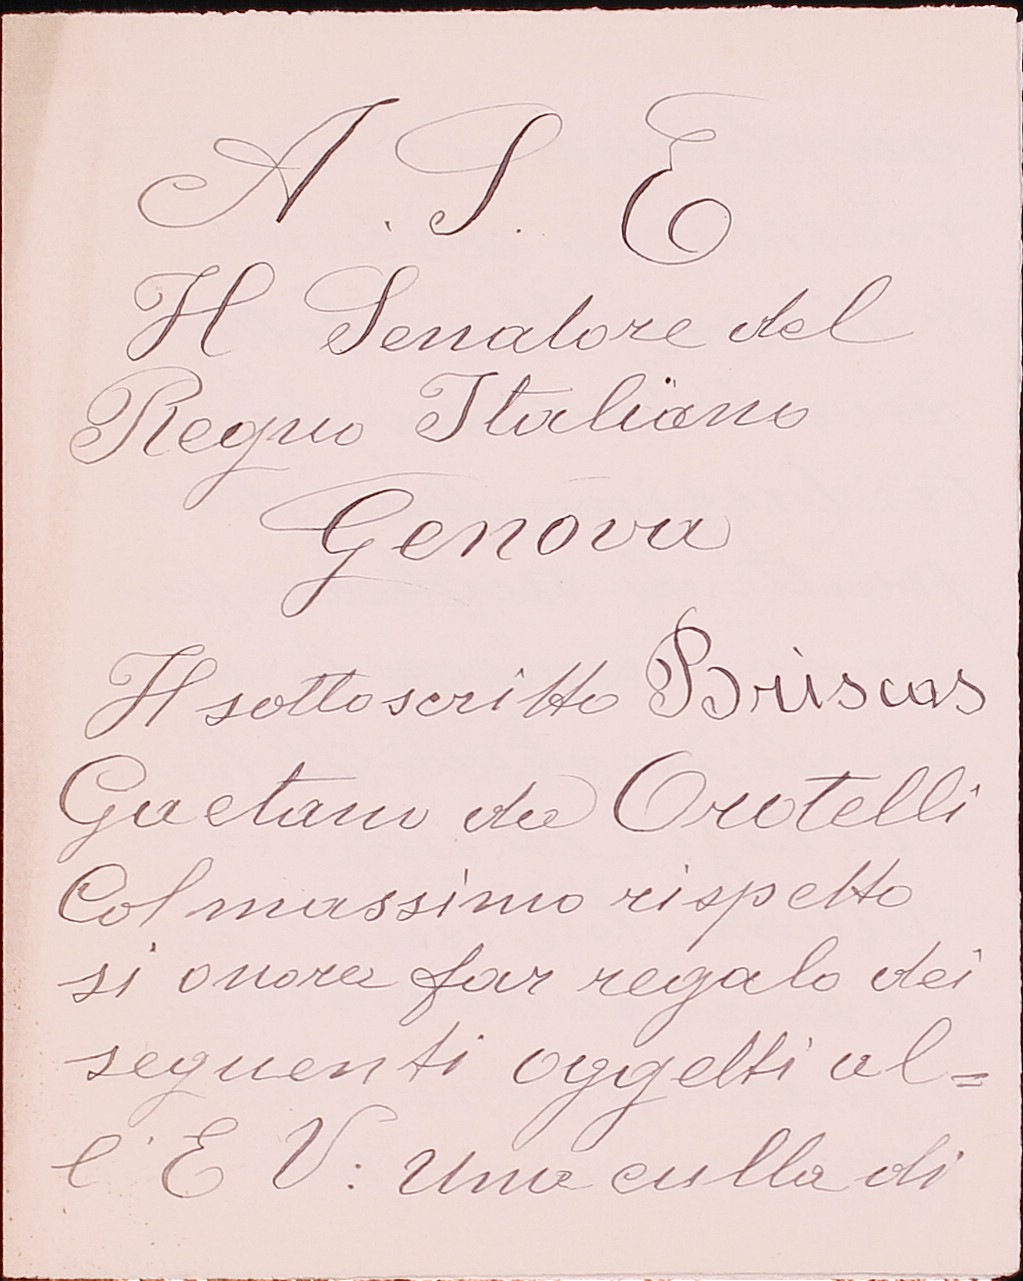 A. S. E
Il Senatore del
Regno Italiano
Genova
Il sottoscritto Briscas
Gaetano da Orotelli
Col massimo rispetto
si onora far regalo dei
seguenti oggetti al=
l'E V: una culla di